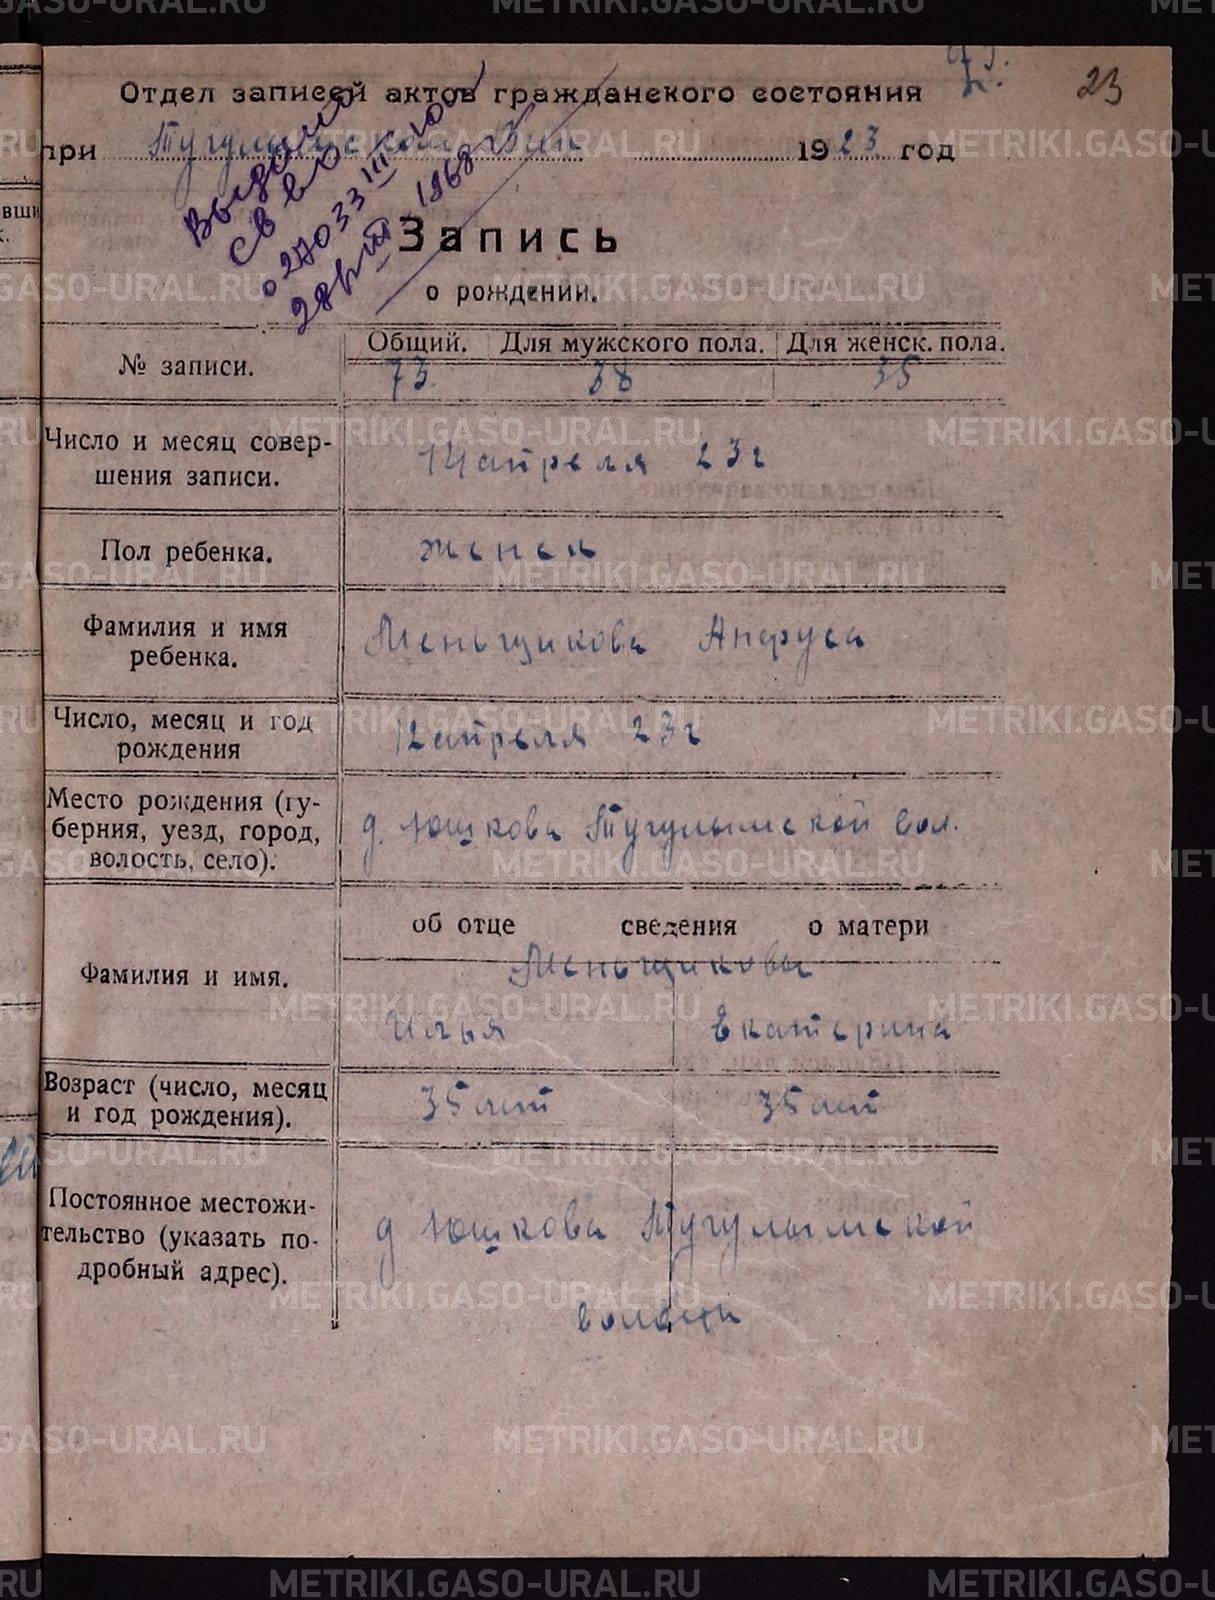 23
Отдел записей актов гражданского состояния
при Тугулымской Вик 1923 год
Выдано
св во
027033
28 1968
Запись
о рождении.
№ записи.
Общий. Для мужского пола. Для женск. пола.
73. 38 35
Число и месяц совер-
шения записи.
14 апреля 23 г
Пол ребенка.
женск
Фамилия и имя
ребенка.
Меньщикова Анфуса
Число, месяц и год
рождения
12 апреля 23 г
Место рождения (гу-
берния, уезд, город,
волость, село).
д. Юшкова Тугулымской вол.
об отце сведения о матери
Фамилия и имя.
Меньщиковы
Илья Екатерина
Возраст (число, месяц
и год рождения).
35 лет 35 лет
Постоянное местожи-
тельство (указать по-
дробный адрес).
д Юшкова Тугулымской
волости
METRIKI.GASO-URAL.RU